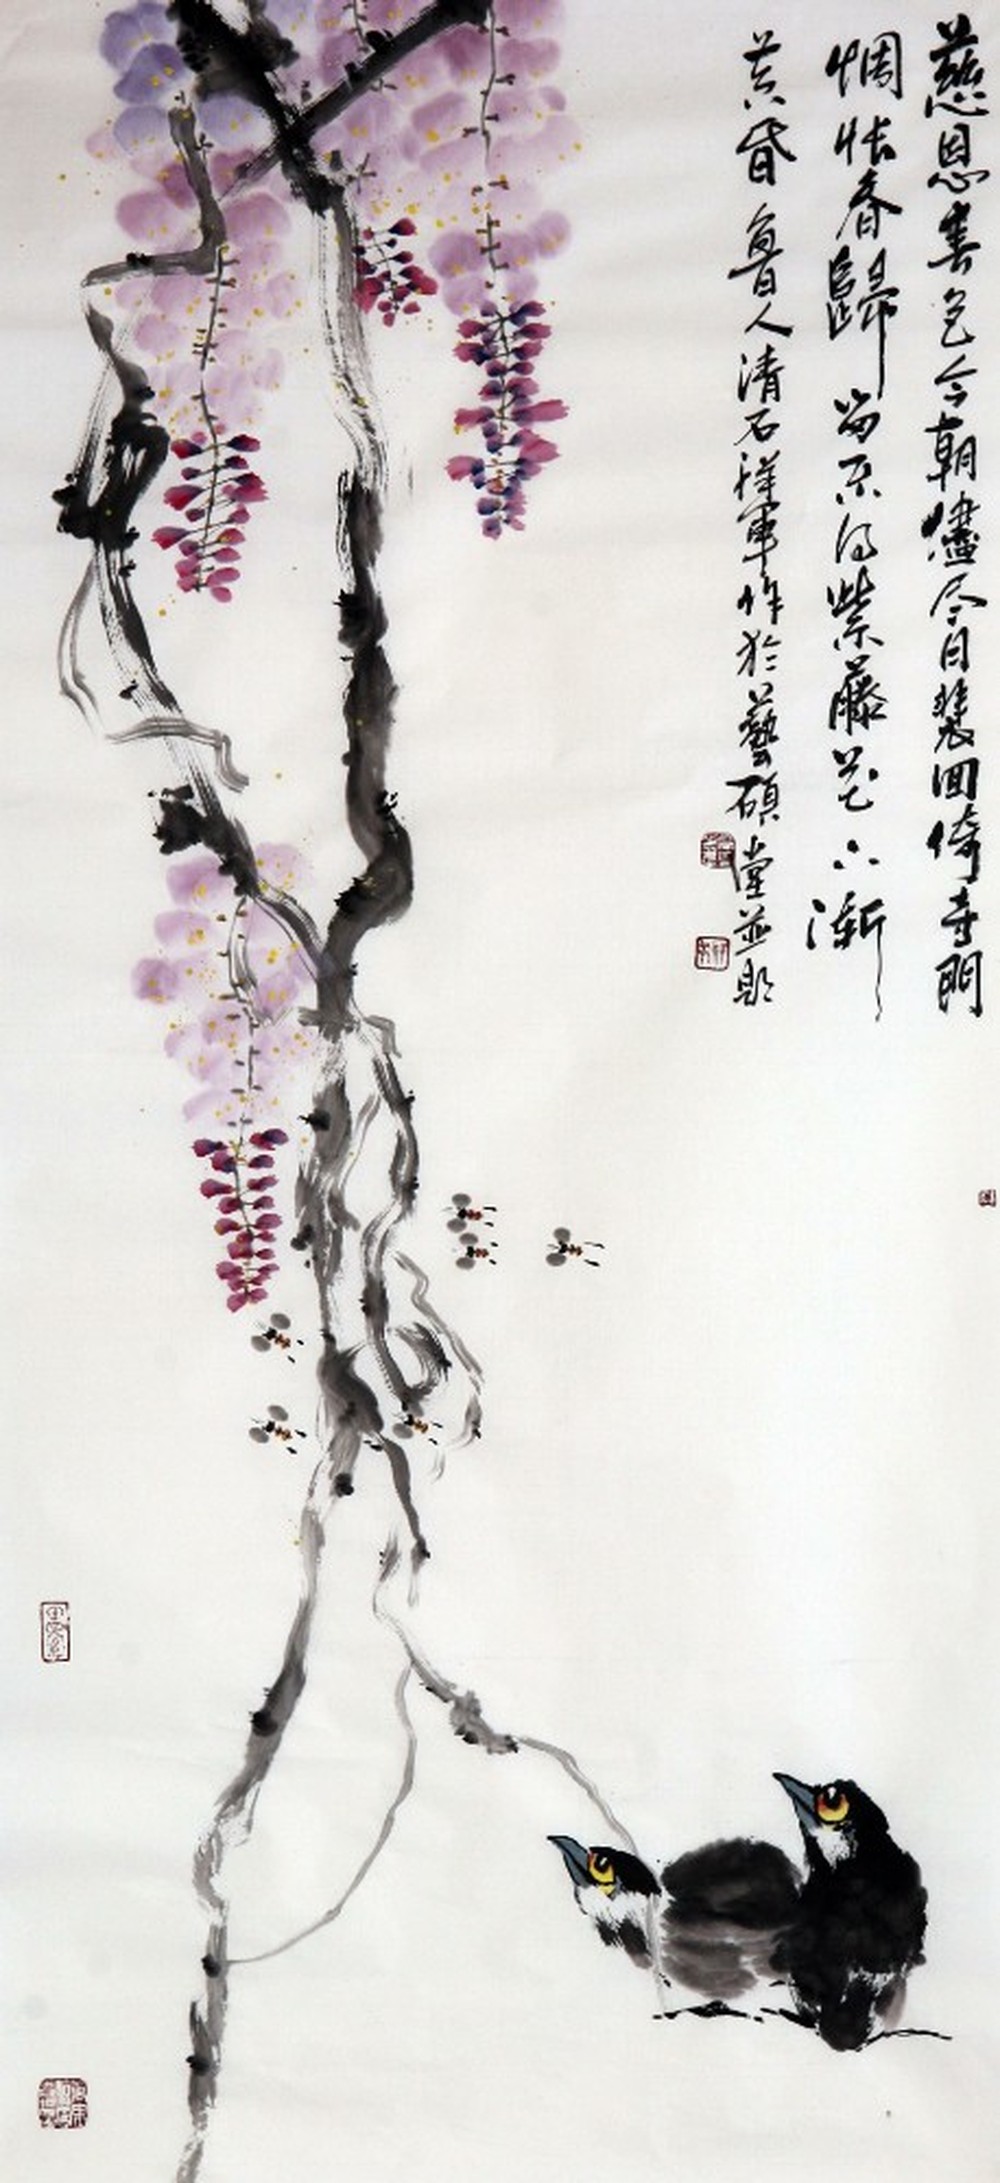 慈恩春色今朝儘尽日裴回倚寺門
惆怅春歸留不得紫藤花下漸
黄昏 魯人清石祥軍作於藝碩堂並題